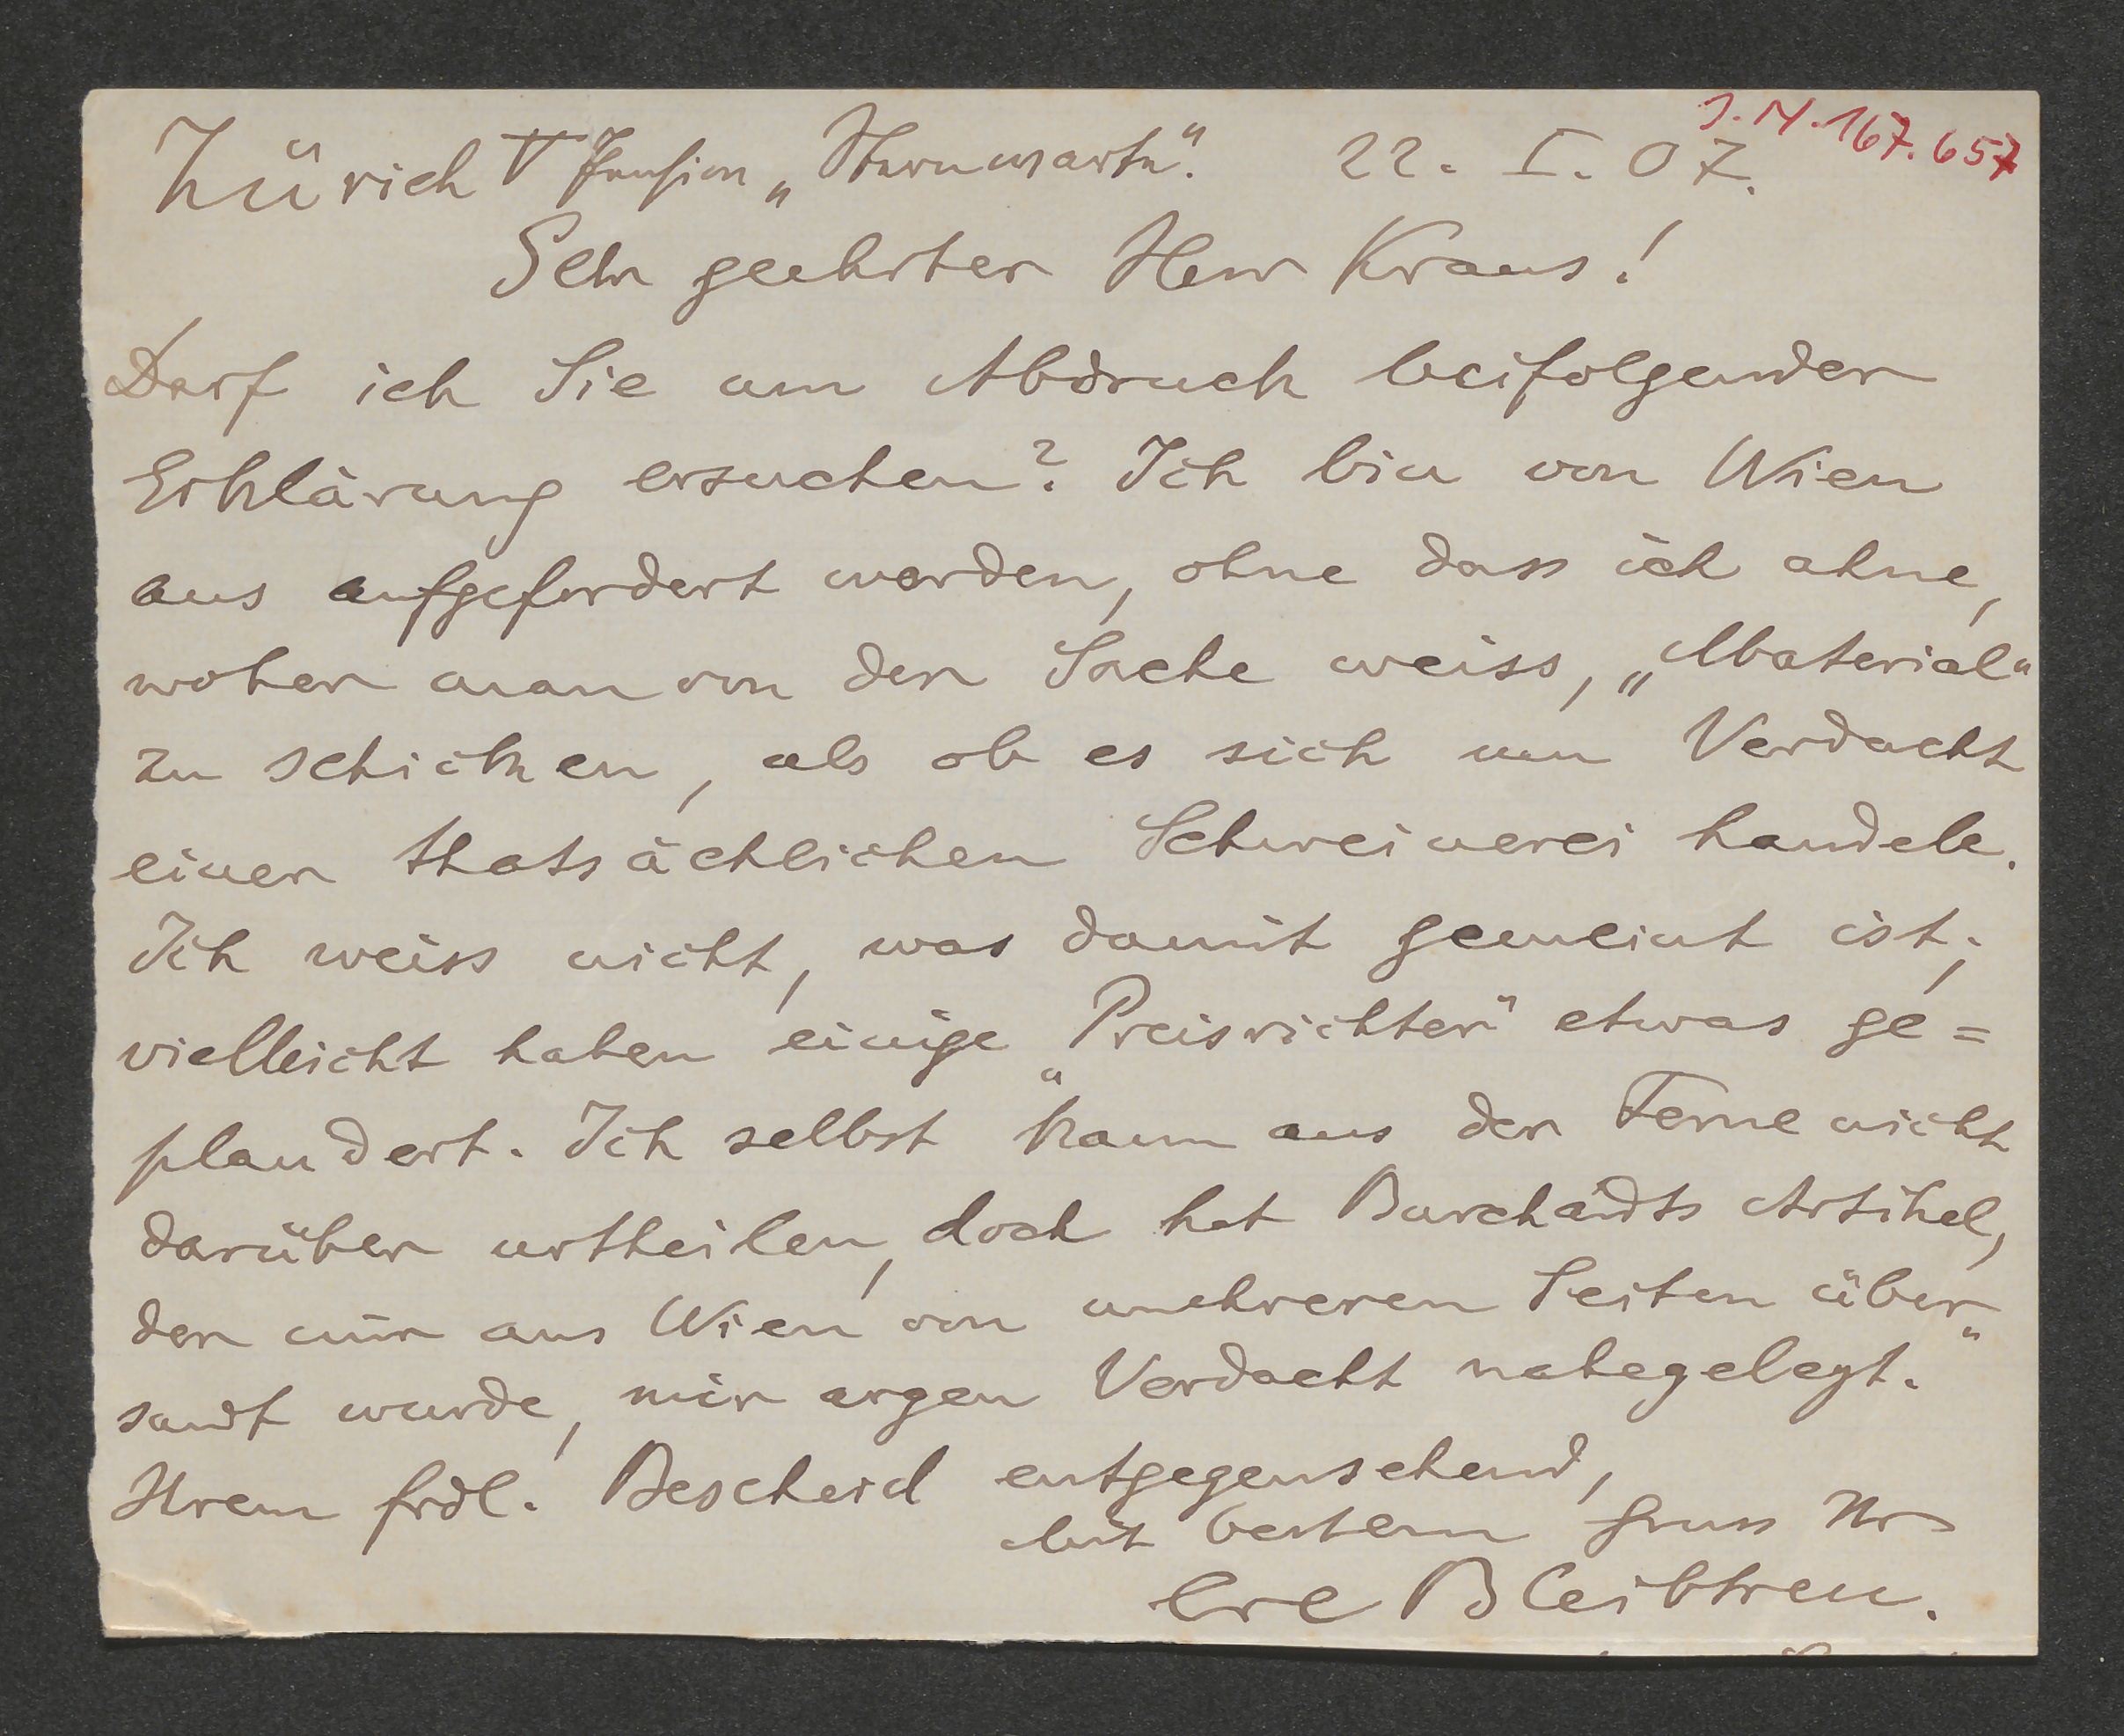 J. N. 167.657
Zürich V Pension „Sternwarte“. 22. I. 07.
Sehr geehrter Herr Kraus!
Darf ich Sie um Abdruck beifolgender
Erklärung ersuchen? Ich bin von Wien
aus aufgefordert worden, ohne dass ich ahne,
woher man von der Sache weiss, „Material“
zu schicken, als ob es sich um Verdacht
einer thatsächlichen Schweinerei handele.
Ich weiss nicht, was damit gemeint ist;
vielleicht haben einige „Preisrichter“ etwas ge=
plaudert. Ich selbst kann aus der Ferne nicht
darüber urtheilen, doch hat Artikel,
der mir aus Wien von mehreren Seiten über=
sandt wurde, mir argen Verdacht nahegelegt.
Ihrem frdl. Bescheid entgegensehend,
mit bestem Gruss Ihr
Bleibtreu.